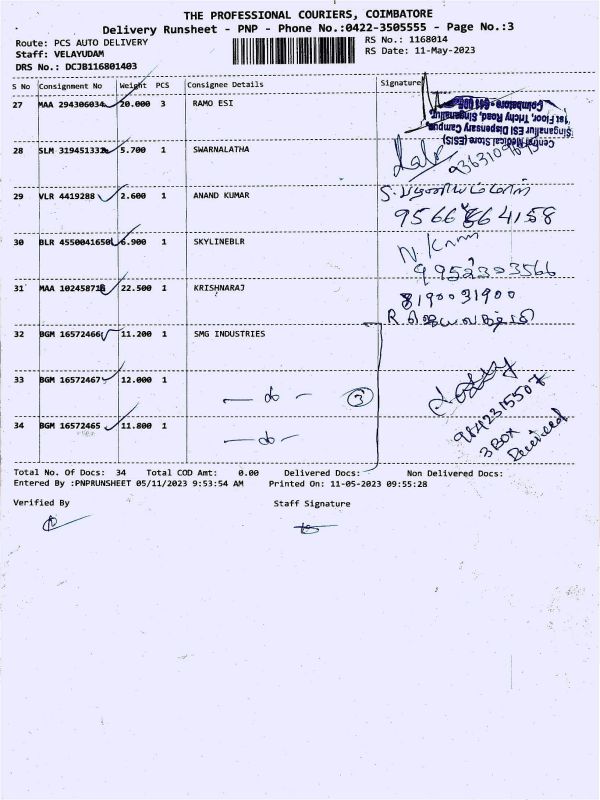 THE PROFESSIONAL COURIERS, COIMBATORE
Delivery Runsheet - PNP - Phone No.:0422-3505555 - Page No.:3
Route: PCS AUTO DELIVERY RS No.: 1168014
Staff: VELAYUDAM RS Date: 11-May-2023
DRS No.: DCJB116801403
S No Consignment No Weight PCS Consignee Details Signature
27 MAA 294306034 20.000 3 RAMO ESI
Central Medical Store (ESIS)
Singanallur ESI Dispensary Campus,
1st Floor, Trichy Road, Singanallur,
28 SLM 319451332 5.700 1 SWARNALATHA
29 VLR 4419288 2.600 1 ANAND KUMAR
30 BLR 4550041650 6.900 1 SKYLINEBLR
9952303566
31 MAA 10245871 22.500 1 KRISHNARAJ
8190031900
32 BGM 16572466 11.200 1 SMG INDUSTRIES
33 BGM 16572467 12.000 1 — do — 3
34 BGM 16572465 11.800 1 — do —
9842315507
3 BOX
Received
Total No. Of Docs: 34 Total COD Amt: 0.00 Delivered Docs: Non Delivered Docs:
Entered By :PNPRUNSHEET 05/11/2023 9:53:54 AM Printed On: 11-05-2023 09:55:28
Verified By Staff Signature